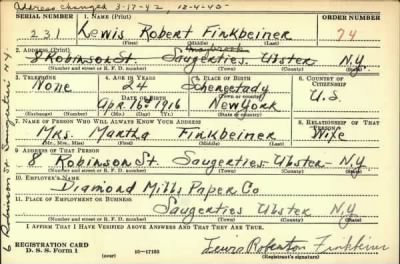 Address changed 3-17-42, 12-4-40-
SERIAL NUMBER 1. NAME (Print) ORDER NUMBER
231 Lewis Robert Finkbeiner 74
(First) (Middle) (Last)
2. ADDRESS (Print)
8 Robinson St. Saugerties Ulster N.Y.
(Number and street or R. F. D. number) (Town) (County) (State)
3. TELEPHONE 4. AGE IN YEARS 5. PLACE OF BIRTH 6. COUNTRY OF CITIZENSHIP
None 24 Schenectady
DATE OF BIRTH (Town or county) U.S.
Apr. 16. 1916 New York
(Exchange) (Number) (Mo.) (Day) (Yr.) (State or country)
7. NAME OF PERSON WHO WILL ALWAYS KNOW YOUR ADDRESS 8. RELATIONSHIP OF THAT PERSON
Mrs. Martha Finkbeiner Wife
(Mr., Mrs., Miss) (First) (Middle) (Last)
9. ADDRESS OF THAT PERSON
8 Robinson St. Saugerties- Ulster- N.Y.
(Number and street or R. F. D. number) (Town) (County) (State)
10. EMPLOYER'S NAME
Diamond Mills Paper Co
11. PLACE OF EMPLOYMENT OR BUSINESS
Saugerties Ulster N.Y.
(Number and street or R. F. D. number) (Town) (County) (State)
I AFFIRM THAT I HAVE VERIFIED ABOVE ANSWERS AND THAT THEY ARE TRUE.
REGISTRATION CARD
D. S. S. Form 1 (over) 16-17105 (Registrant's signature)
6 Robinson St. Saugerties N.Y.